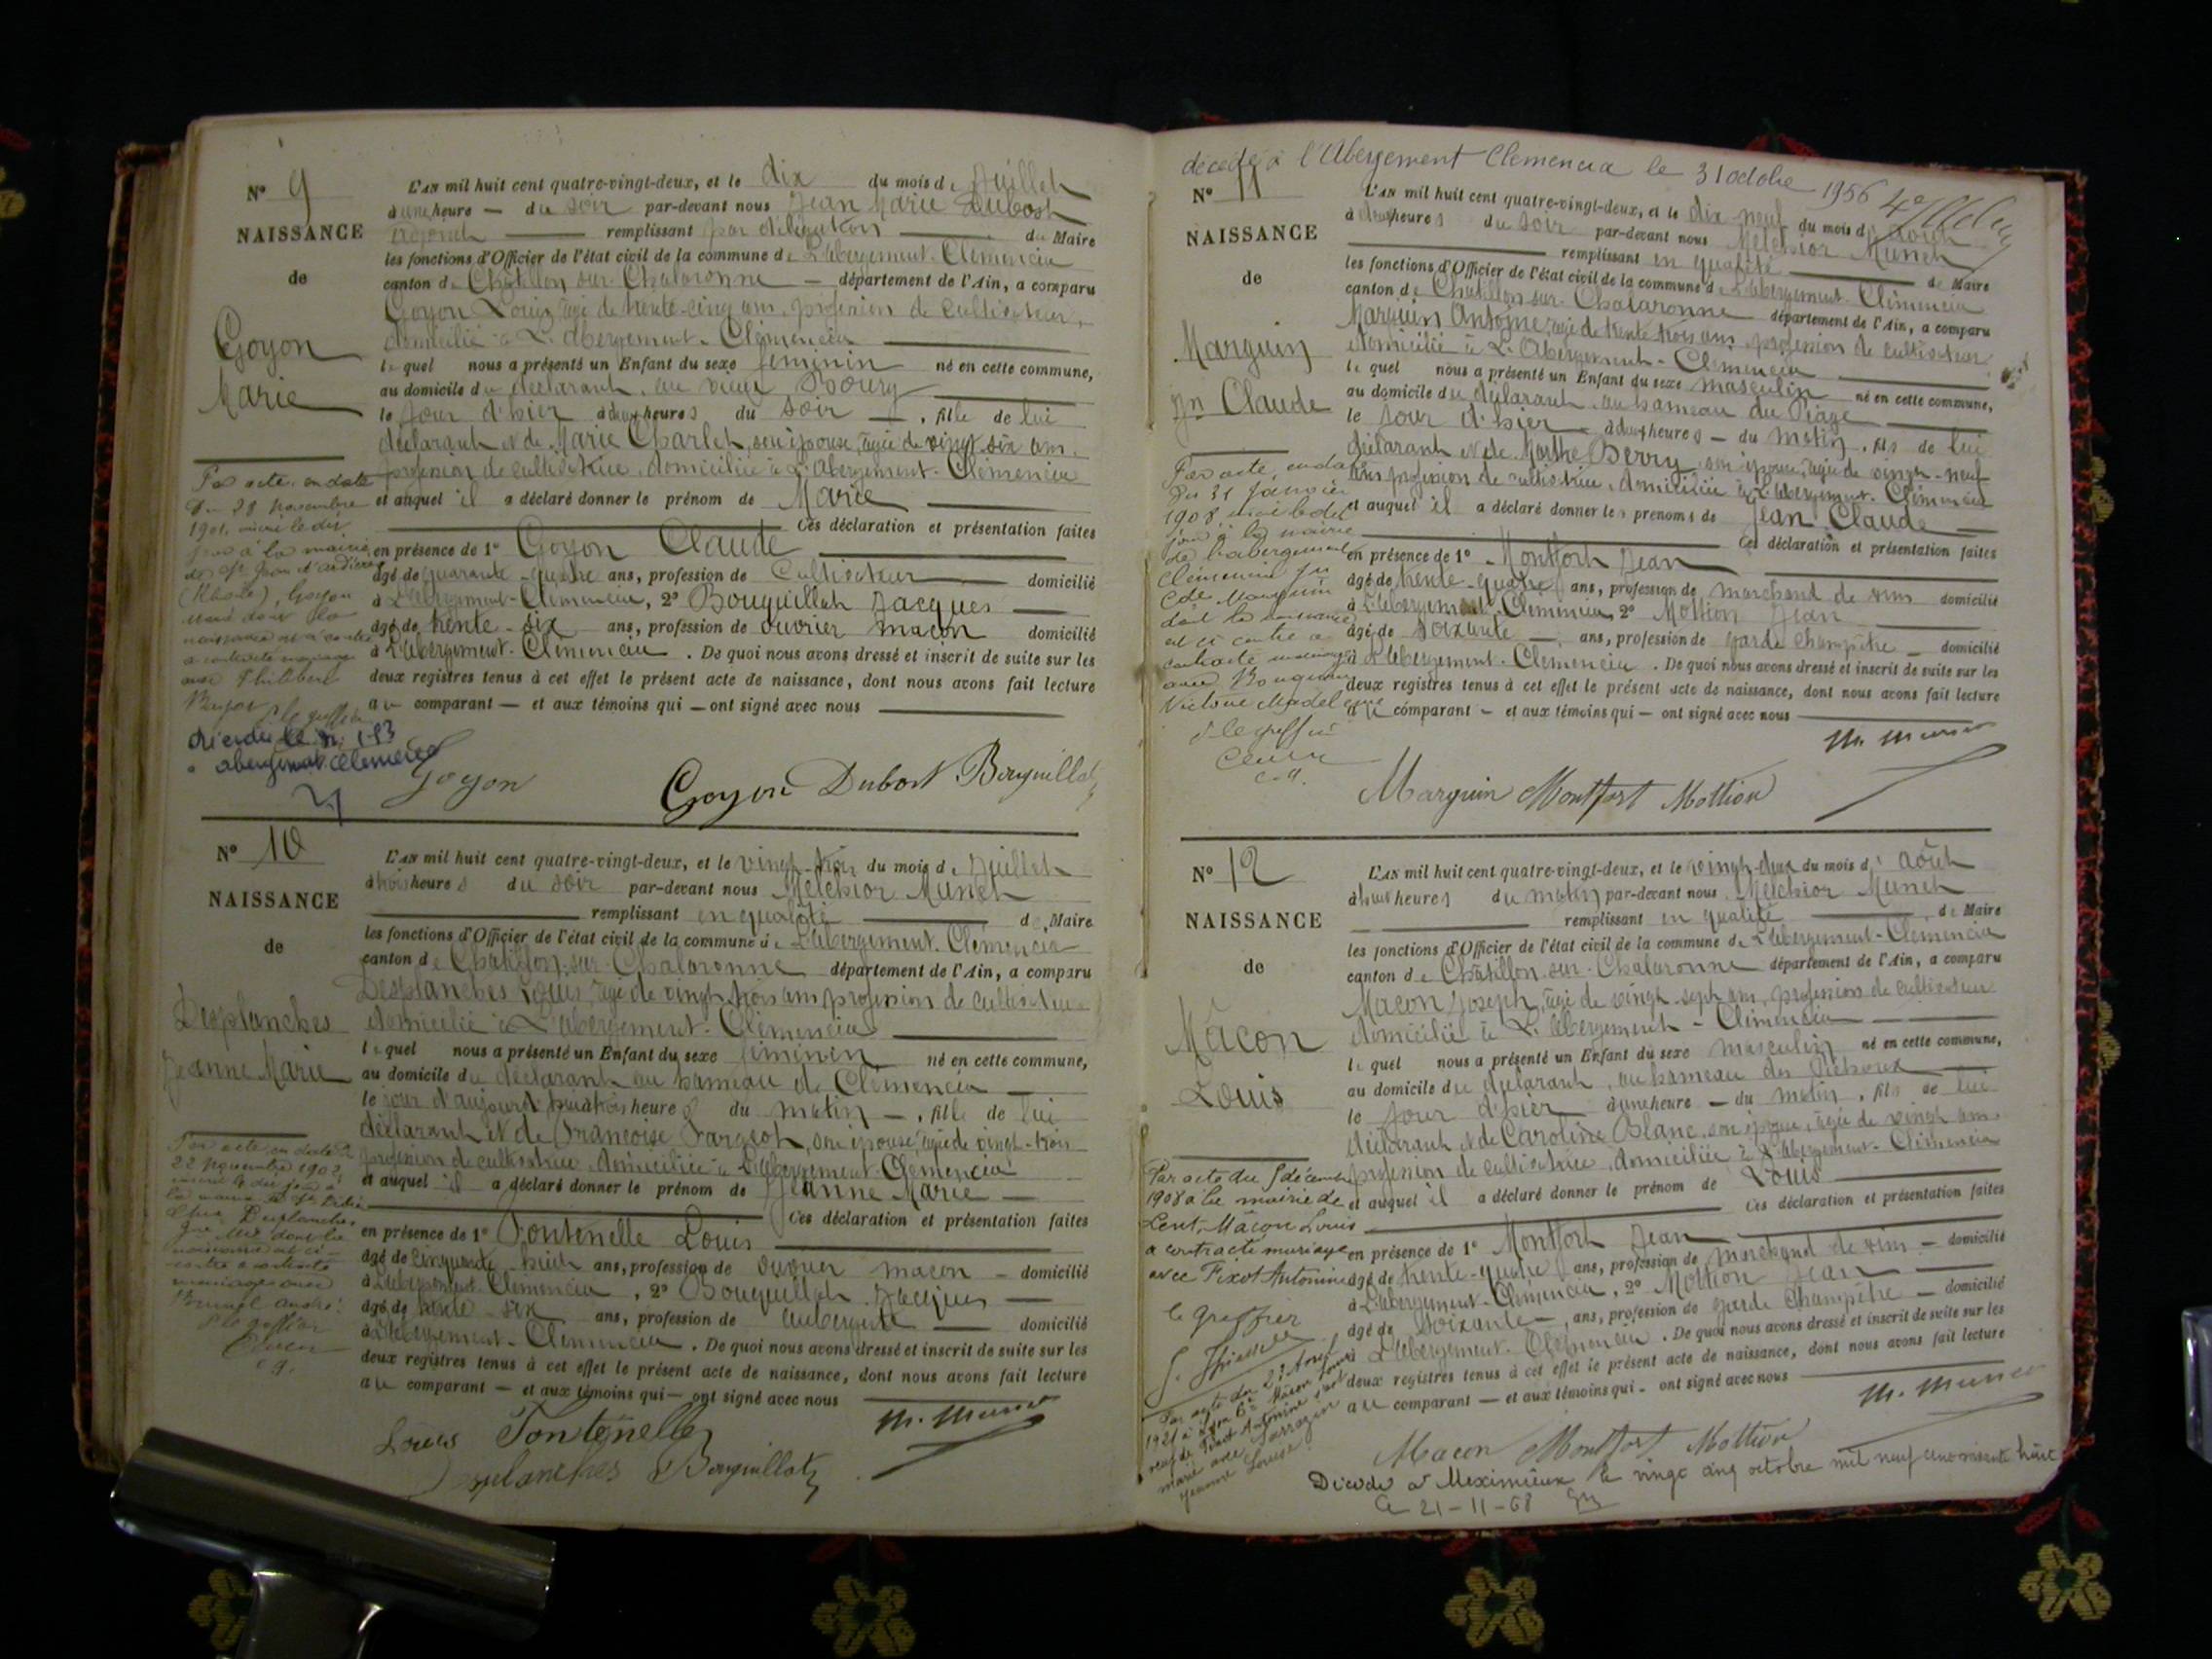 N° 9
NAISSANCE
de
Goyon
Marie
L'AN mil huit cent quatre-vingt-deux, et le dix du mois de Juillet
à une heure — du soir par-devant nous Jean Marie Dubost
adjoint remplissant par délégation du Maire
les fonctions d'Officier de l'état civil de la commune de L'Abergement-Clémencia
canton de Châtillon-sur-Chalaronne — département de l'Ain, a comparu
Goyon Louis, âgé de trente-cinq ans, profession de cultivateur,
domicilié à L'Abergement-Clémencia
lequel nous a présenté un Enfant du sexe féminin né en cette commune,
au domicile du déclarant, au vieux Bourg
le jour d'hier à deux heures du soir —, fille de lui
déclarant et de Marie Charlet, son épouse, âgée de vingt-six ans,
profession de cultivatrice, domiciliée à L'Abergement-Clémencia
et auquel il a déclaré donner le prénom de Marie
Ces déclaration et présentation faites
en présence de 1° Goyon Claude
âgé de quarante-quatre ans, profession de Cultivateur domicilié
à L'Abergement-Clémencia, 2° Bouquillet Jacques
âgé de trente-six ans, profession de ouvrier maçon domicilié
à L'Abergement-Clémencia. De quoi nous avons dressé et inscrit de suite sur les
deux registres tenus à cet effet le présent acte de naissance, dont nous avons fait lecture
au comparant — et aux témoins qui — ont signé avec nous
Par acte en date
du 28 novembre
1901, inscrit le dit
jour à la mairie
de St Jean d'Ardières
(Rhône), Goyon
Marie dont la
naissance est ci contre
a contracté mariage
avec Philibert
le greffier
décédée le
abergement Clemencia
Goyon Goyon Dubost Bouquillet
N° 10
NAISSANCE
de
Desplanches
Jeanne Marie
L'AN mil huit cent quatre-vingt-deux, et le vingt-trois du mois de Juillet
à trois heures du soir par-devant nous Melchior Munet
remplissant en qualité de Maire
les fonctions d'Officier de l'état civil de la commune de L'Abergement-Clémencia
canton de Châtillon-sur-Chalaronne département de l'Ain, a comparu
Desplanches Louis, âgé de vingt-trois ans, profession de cultivateur
domicilié à L'Abergement-Clémencia
lequel nous a présenté un Enfant du sexe féminin né en cette commune,
au domicile du déclarant au hameau de Clémencia
le jour d'aujourd'hui à trois heures du matin —, fille de lui
déclarant et de Françoise Fargeot, son épouse, âgée de vingt-trois
profession de cultivatrice, domiciliée à L'Abergement-Clémencia
et auquel il a déclaré donner le prénom de Jeanne Marie
Ces déclaration et présentation faites
en présence de 1° Fontenelle Louis
âgé de cinquante-huit ans, profession de ouvrier maçon — domicilié
à L'Abergement-Clémencia, 2° Bouquillet Jacques
âgé de trente-six ans, profession de aubergiste domicilié
à L'Abergement-Clémencia. De quoi nous avons dressé et inscrit de suite sur les
deux registres tenus à cet effet le présent acte de naissance, dont nous avons fait lecture
au comparant — et aux témoins qui — ont signé avec nous
Par acte en date du
22 novembre 1902,
inscrit le dit jour à
la mairie de St Didier
Desplanches
Jne Mie dont la
naissance est ci-
contre a contracté
mariage avec
Brunel André
le greffier
M. Munet
Louis Fontenelle
Desplanches Bouquillet
décédé à l'Abergement Clemencia le 31 octobre 1956
N° 11
NAISSANCE
de
Marguin
Jn Claude
L'AN mil huit cent quatre-vingt-deux, et le dix-neuf du mois d'août
à deux heures du soir par-devant nous Melchior Munet
remplissant en qualité de Maire
les fonctions d'Officier de l'état civil de la commune de L'Abergement-Clémencia
canton de Châtillon-sur-Chalaronne département de l'Ain, a comparu
Marguin Antoine, âgé de trente-trois ans, profession de cultivateur
domicilié à L'Abergement-Clémencia
lequel nous a présenté un Enfant du sexe masculin né en cette commune,
au domicile du déclarant, au hameau du Péage
le jour d'hier à deux heures — du matin, fils de lui
déclarant et de Marthe Berry, son épouse, âgée de vingt-neuf
ans profession de cultivatrice, domiciliée à L'Abergement-Clémencia
et auquel il a déclaré donner les prénoms de Jean Claude
Ces déclaration et présentation faites
en présence de 1° Montfort Jean
âgé de trente-quatre ans, profession de marchand de vins domicilié
à L'Abergement-Clémencia, 2° Mottion Jean
âgé de soixante — ans, profession de garde champêtre — domicilié
à L'Abergement-Clémencia. De quoi nous avons dressé et inscrit de suite sur les
deux registres tenus à cet effet le présent acte de naissance, dont nous avons fait lecture
au comparant — et aux témoins qui — ont signé avec nous
Par acte en date
du 31 janvier
1908, inscrit le dit
jour à la mairie
de l'abergement
Clémencia Jn
Cde Marguin
dont la naissance
est ci contre a
contracté mariage
avec
Victorine Madeleine
le greffier
M. Munet
Marguin Montfort Mottion
N° 12
NAISSANCE
de
Mâcon
Louis
L'AN mil huit cent quatre-vingt-deux, et le vingt-deux du mois d'août
à huit heures du matin par-devant nous Melchior Munet
remplissant en qualité de Maire
les fonctions d'Officier de l'état civil de la commune de L'Abergement-Clémencia
canton de Châtillon-sur-Chalaronne département de l'Ain, a comparu
Mâcon Joseph, âgé de vingt-sept ans, profession de cultivateur
domicilié à L'Abergement-Clémencia
lequel nous a présenté un Enfant du sexe masculin né en cette commune,
au domicile du déclarant, au hameau des
le jour d'hier à une heure — du matin, fils de lui
déclarant et de Caroline Blanc, son épouse, âgée de vingt ans
profession de cultivatrice, domiciliée à L'Abergement-Clémencia
et auquel il a déclaré donner le prénom de Louis
Ces déclaration et présentation faites
en présence de 1° Montfort Jean
âgé de trente-quatre ans, profession de marchand de vins — domicilié
à L'Abergement-Clémencia, 2° Mottion Jean
âgé de soixante —, ans, profession de garde champêtre — domicilié
à L'Abergement-Clémencia. De quoi nous avons dressé et inscrit de suite sur les
deux registres tenus à cet effet le présent acte de naissance, dont nous avons fait lecture
au comparant — et aux témoins qui - ont signé avec nous
Par acte du 5 décembre
1908 à la mairie de
Lent, Mâcon Louis
a contracté mariage
avec Fixot Antonine
le Greffier
Par acte du 27 Aout
1921 à Lyon 6e Mâcon Louis
veuf de Fixot Antonine s'est
marié avec Sarrazin
Jeanne Louise
M. Munet
Macon Montfort Mottion
Décédé à Meximieux le vingt cinq octobre mil neuf cent soixante huit
Le 21-11-68